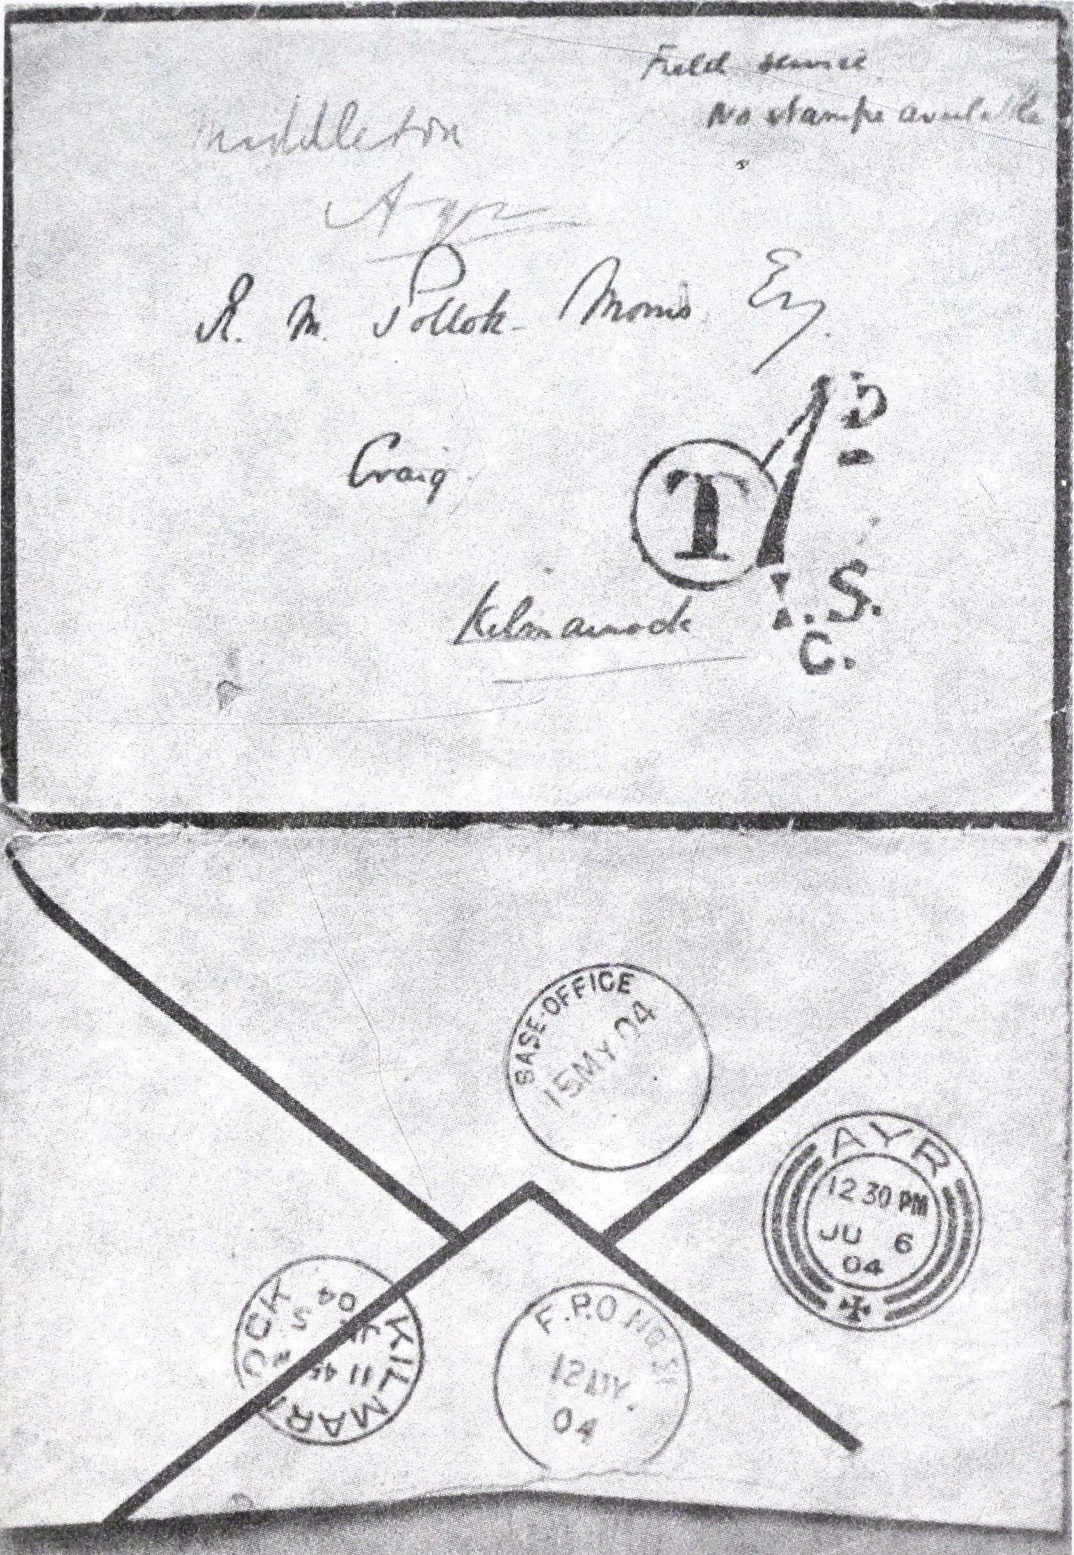 Field service
No stamps available
Middleton
Ayr
R. M. Pollok-Morris Esq.
Craig
T
1 D
I.S.
C.
Kilmarnock
BASE-OFFICE
15 MY 04
AYR
12 30 PM
JU 6
04
KILMARNOCK
11 45
JU 5
04
F.P.O. NO.
12 MY.
04